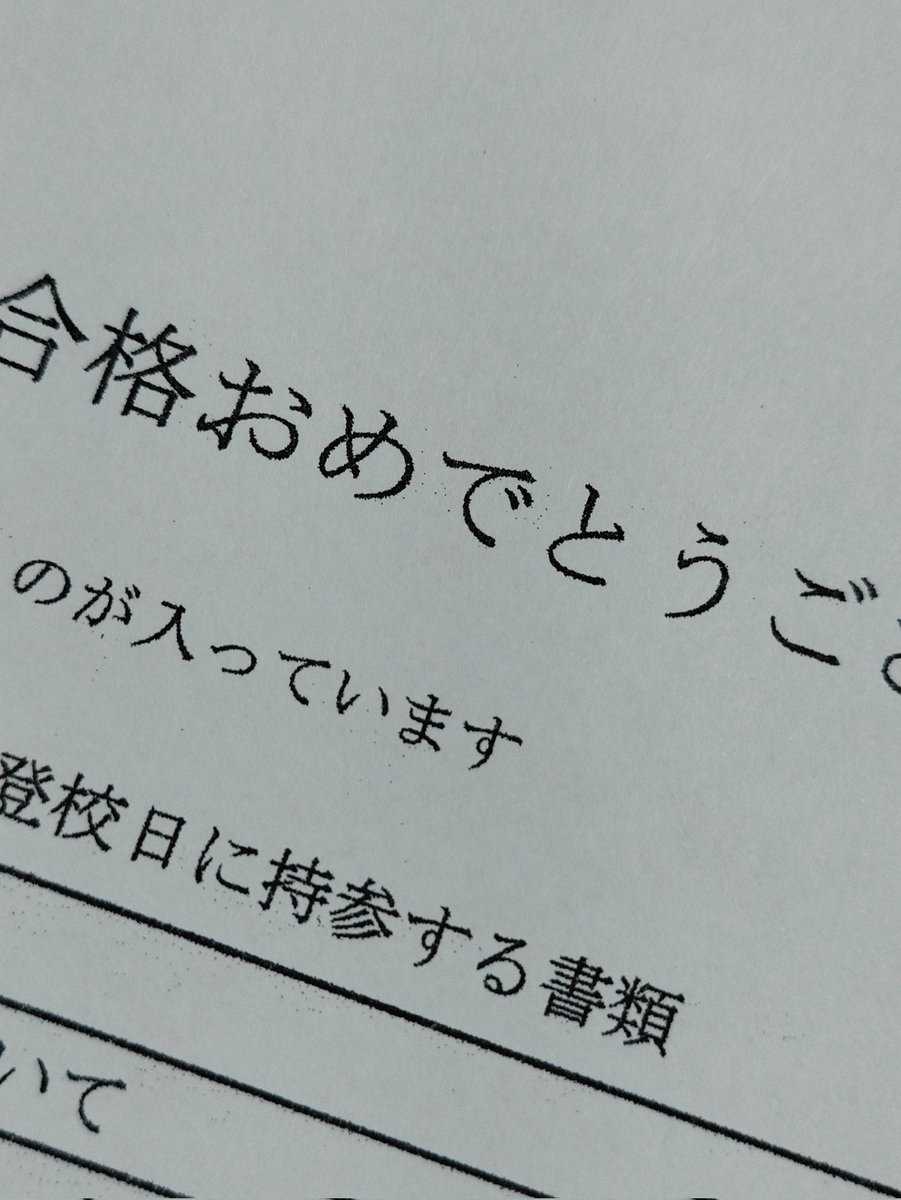 合格おめでとうご
のが入っています
登校日に持参する書類
いて